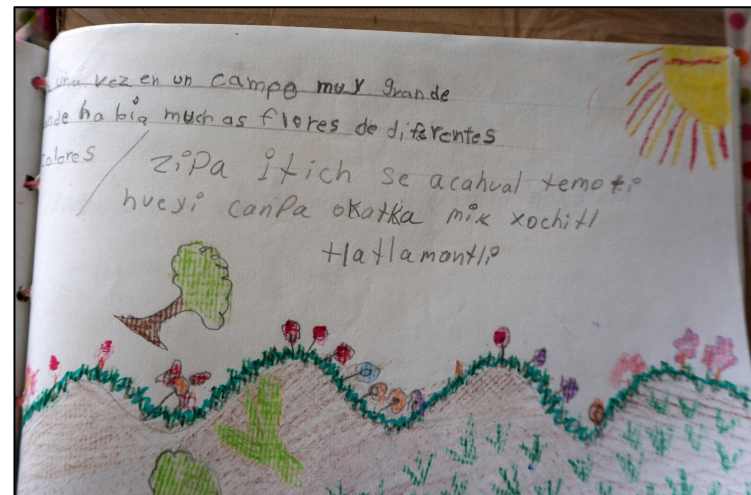 una vez en un campo muy grande
nde habia muchas flores de diferentes
colores
zipa itich se acahual temoti
hueyi canpa okatka mik xochitl
tlatlamantli